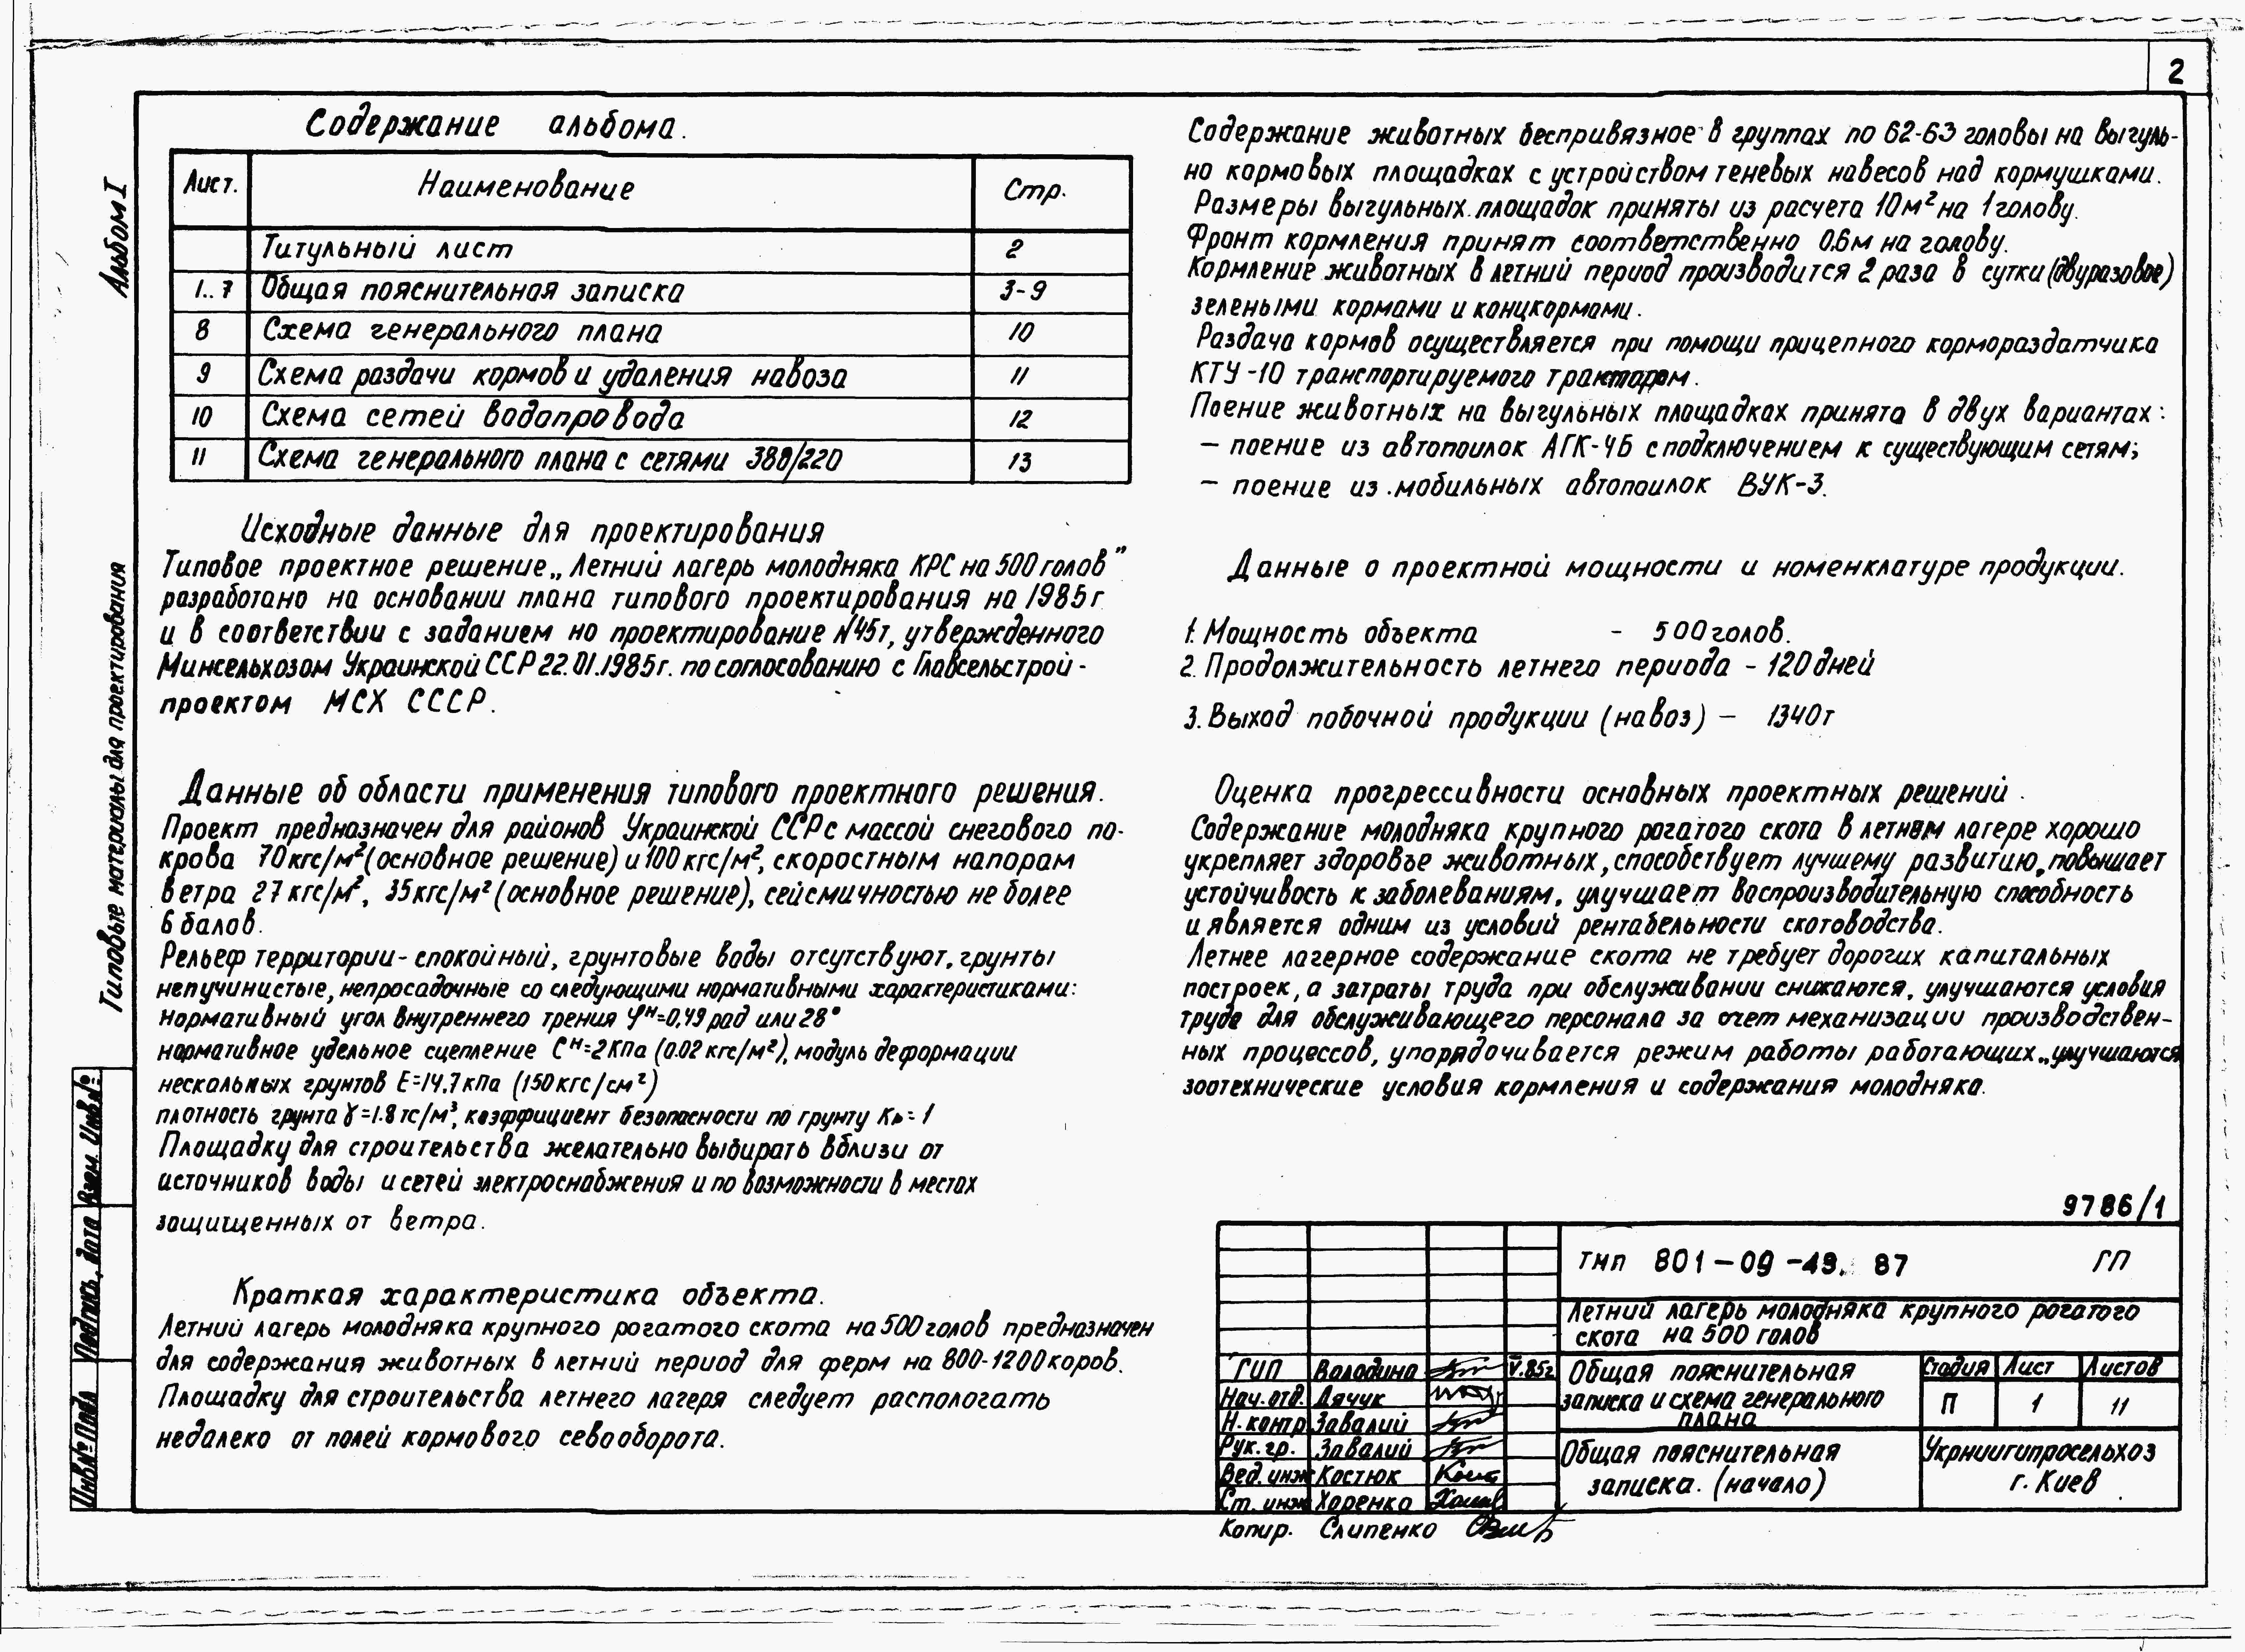 2
Альбом I
Типовые материалы для проектирования
Взам. Инв№
Подпись, дата
Инв№ Подл
Содержание альбома.
Лист. Наименование Стр.
Титульный лист 2
1..7 Общая пояснительная записка 3-9
8 Схема генерального плана 10
9 Схема раздачи кормов и удаления навоза 11
10 Схема сетей водопровода 12
11 Схема генерального плана с сетями 380/220 13
Исходные данные для проектирования
Типовое проектное решение „Летний лагерь молодняка КРС на 500 голов”
разработано на основании плана типового проектирования на 1985г
и в соответствии с заданием но проектирование №45т, утвержденного
Минсельхозом Украинской ССР 22.01.1985г. по соглосованию с Главсельстрой-
проектом МСХ СССР.
Данные об области применения типового проектного решения.
Проект предназначен для районов Украинской ССР с массой снегового по-
крова 70кгс/м² (основное решение) и 100 кгс/м², скоростным напорам
ветра 27 кгс/м², 35кгс/м² (основное решение), сейсмичностью не более
6 балов.
Рельеф территории - спокойный, грунтовые воды отсутствуют, грунты
непучинистые, непросадочные со следующими нормативными характеристиками:
нормативный угол внутреннего трения φн=0,49 рад или 28°
нормативное удельное сцепление Сн=2КПа (0.02 кгс/м²), модуль деформации
нескальных грунтов Е=14,7кПа (150кгс/см²)
плотность грунта γ=1.8 тс/м³, коэффициент безопасности по грунту Кр=1
Площадку для строительства желательно выбирать вблизи от
источников воды и сетей электроснабжения и по возможности в местах
защищенных от ветра.
Краткая характеристика объекта.
Летний лагерь молодняка крупного рогатого скота на 500 голов предназначен
для содержания животных в летний период для ферм на 800-1200 коров.
Площадку для строительства летнего лагеря следует распологать
недалеко от полей кормового севооборота.
Содержание животных беспривязное в группах по 62-63 головы на выгуль-
но кормовых площадках с устройством теневых навесов над кормушками.
Размеры выгульных площадок приняты из расчета 10м² на 1 голову.
Фронт кормления принят соответственно 0.6м на голову.
Кормление животных в летний период производится 2 раза в сутки (двуразовое)
зелеными кормами и концкормами.
Раздача кормов осуществляется при помощи прицепного кормораздатчика
КТУ-10 транспортируемого трактором.
Поение животных на выгульных площадках принята в двух вариантах:
— поение из автопоилок АГК-4Б с подключением к существующим сетям;
— поение из мобильных автопоилок ВУК-3.
Данные о проектной мощности и номенклатуре продукции.
1. Мощность объекта - 500 голов.
2. Продолжительность летнего периода - 120 дней
3. Выход побочной продукции (навоз) — 1340т
Оценка прогрессивности основных проектных решений.
Содержание молодняка крупного рогатого скота в летнем лагере хорошо
укрепляет здоровье животных, способствует лучшему развитию, повышает
устойчивость к заболеваниям, улучшает воспроизводительную способность
и является одним из условий рентабельности скотоводства.
Летнее лагерное содержание скота не требует дорогих капитальных
построек, а затраты труда при обслуживании снижаются, улучшаются условия
труда для обслуживающего персонала за счет механизации производствен-
ных процессов, упорядочивается режим работы работающих, улучшаются
зоотехнические условия кормления и содержания молодняка.
9786/1
ТМП 801-09-49. 87 ГП
Летний лагерь молодняка крупного рогатого
скота на 500 голов
ГИП Володина V.85г
Нач.отд. Дячук
Н.контр Завалий
Рук.гр. Завалий
Вед.инж Костюк
Ст.инж Харенко
Общая пояснительная
записка и схема генерального
плана
Стадия Лист Листов
П 1 11
Общая пояснительная
записка. (начало)
Укрниигипросельхоз
г. Киев
Копир. Слипенко